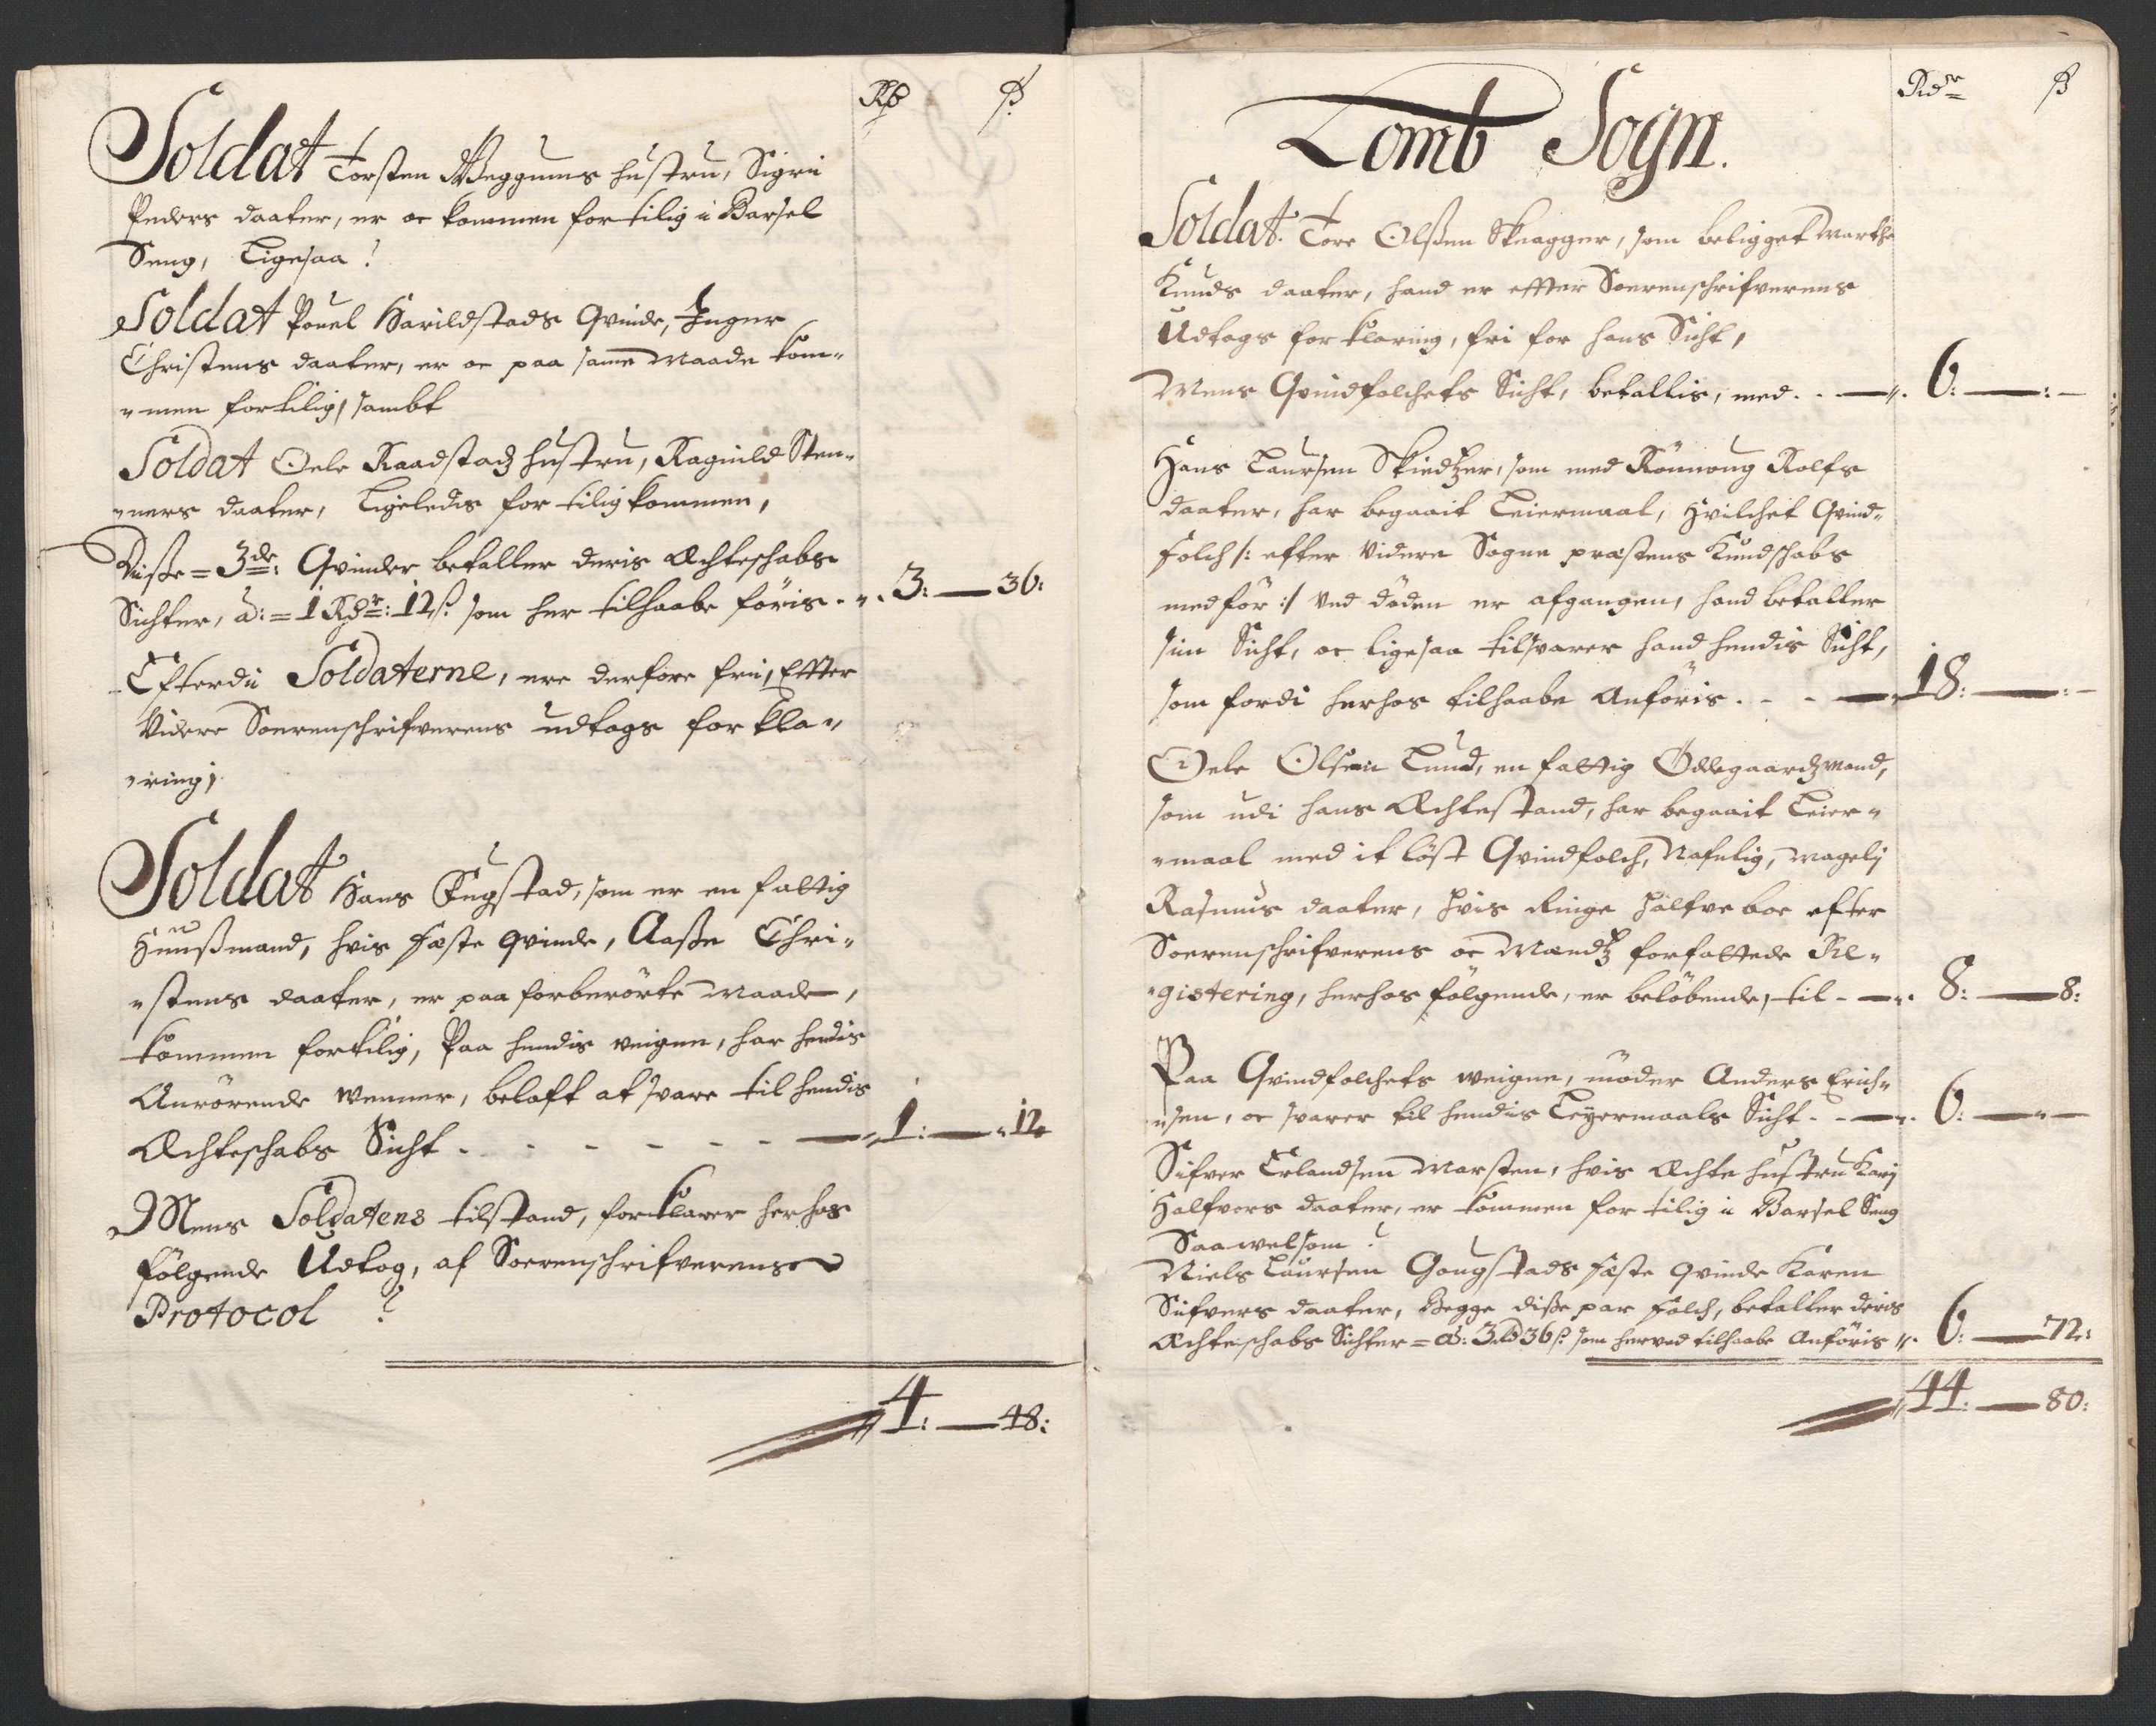 Rd ß
Soldat Torsten Weggums hustru, Sigri
Peders daater, er oc kommen for tilig i Barsel
Seng, Ligesaa?
Soldat Pouel Harildstads Qvinde, Inger
Christens daater, er oc paa samme Maade kom-
-men fortilig, sambt
Soldat Oele Raadstads hustru, Ragnild Sten-
-ners daater, ligeledis for tilig kommen,
Diße = 3de: Qvinder betaller deris Ægteschabs
Sichter, á: = 1 Rdr: 12ß som her tilhaabe föris - 3: — 36:
Efterdi Soldaterne, ere derfore fri, Effter
Videre Sorenschrifverens udtogs for kla-
-ring,
Soldat Hans Kugstad, som er en fattig
Huußmand, hvis Fæste qvinde, Aaße Chri-
-stens daater, er paa forberörte Maade,
kommen fortilig, Paa hendis veigne, har hendis
Anrörende Wenner, belaft at svare til hendis
Ægteschabs Sicht - - - - - 1: — 12
Mens Soldatens tilstand, forklarer herhos
fölgende Udtog, af Sorenschrifverens
Protocol?
4: — 48:
Rdr ß
Lomb Sogn.
Soldat. Tore Olßen Skeagger, som beligget Marthe
Knuds daater, hand er effter Sorenschrifverens
Udtogs for klaring, fri for hans Sicht,
Mens Qvindfolchets Sicht, betallis, med - - 6: — : —
Hans Laursen Skiedtzer, som med Rönnoug Rolfs
daater, har begaait Leiermaal, hvilchet Qvind-
Folch /: efter Videre Sogne præstens Kundschabs
medför :/ Ved döden er afgangen, hand betaller
sin Sicht, oc ligesaa tilsvarer hand hendis Sicht,
som fordi herhos tilhaabe Anföris - - - 18: — : —
Oele Olsen Lund, en fattig Ödegaardzmand,
som udi hans Ægtestand, har begaait Leier-
-maal med it löst Qvindfolch, Nafnlig, Mageli
Rasmus daater, hvis Ringe halfve boe efter
Sorenschrifverens oc Mændtz forfattede Re-
-gistering, herhos fölgende, er belöbende, til - 8: — 8:
Paa Qvindfolchets weigne, möder Anders Erich-
-sen, oc svarer til hendis Leyermaals Sicht - - 6: — —
Sifver Erlandsen Marsten, hvis Ægte hustru Kari
Halfvors daater, er kommen for tilig i Barsel Seng
Saawelsom?
Niels Laursen Gougstads Fæste qvinde Karen
Sifvers daater, Begge diße par Folch, betaller deris
Ægteschabs Sichter = á: 3rd 36ß som herved tilhaabe Anföris - 6: — 72:
44: — 80: